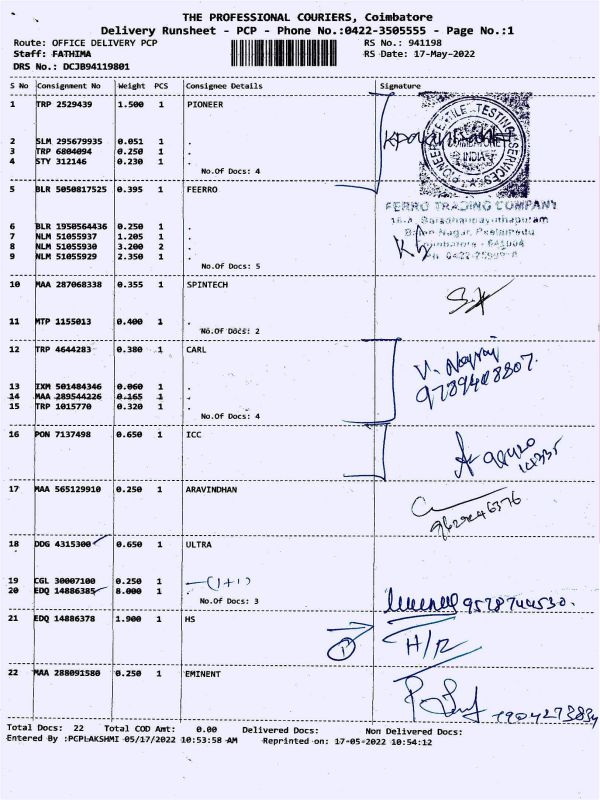 THE PROFESSIONAL COURIERS, Coimbatore
Delivery Runsheet - PCP - Phone No.:0422-3505555 - Page No.:1
Route: OFFICE DELIVERY PCP RS No.: 941198
Staff: FATHIMA RS Date: 17-May-2022
DRS No.: DCJB94119801
S No Consignment No Weight PCS Consignee Details Signature
1 TRP 2529439 1.500 1 PIONEER
PIONEER TEXTILE TESTING SERVICES
COIMBATORE
INDIA
2 SLM 295679935 0.051 1 .
3 TRP 6804094 0.250 1 .
4 STY 312146 0.230 1 .
No.Of Docs: 4
5 BLR 5050817525 0.395 1 FEERRO
FERRO TRADING COMPANY
Nagar, Peelamedu
Coimbatore - 641004
6 BLR 1950564436 0.250 1 .
7 NLM 51055937 1.205 1 .
8 NLM 51055930 3.200 2 .
9 NLM 51055929 2.350 1 .
No.Of Docs: 5
10 MAA 287068338 0.355 1 SPINTECH
11 MTP 1155013 0.400 1 .
No.Of Docs: 2
12 TRP 4644283 0.380 1 CARL
13 IXM 501484346 0.060 1 .
14 MAA 289544226 0.165 1 .
15 TRP 1015770 0.320 1 .
No.Of Docs: 4
16 PON 7137498 0.650 1 ICC
17 MAA 565129910 0.250 1 ARAVINDHAN
18 DDG 4315300 0.650 1 ULTRA
19 CGL 30007100 0.250 1 (1+1)
20 EDQ 14886385 8.000 1 .
No.Of Docs: 3
9578744530.
21 EDQ 14886378 1.900 1 HS
1 H/R
22 MAA 288091580 0.250 1 EMINENT
Total Docs: 22 Total COD Amt: 0.00 Delivered Docs: Non Delivered Docs:
Entered By :PCPLAKSHMI 05/17/2022 10:53:58 AM Reprinted on: 17-05-2022 10:54:12